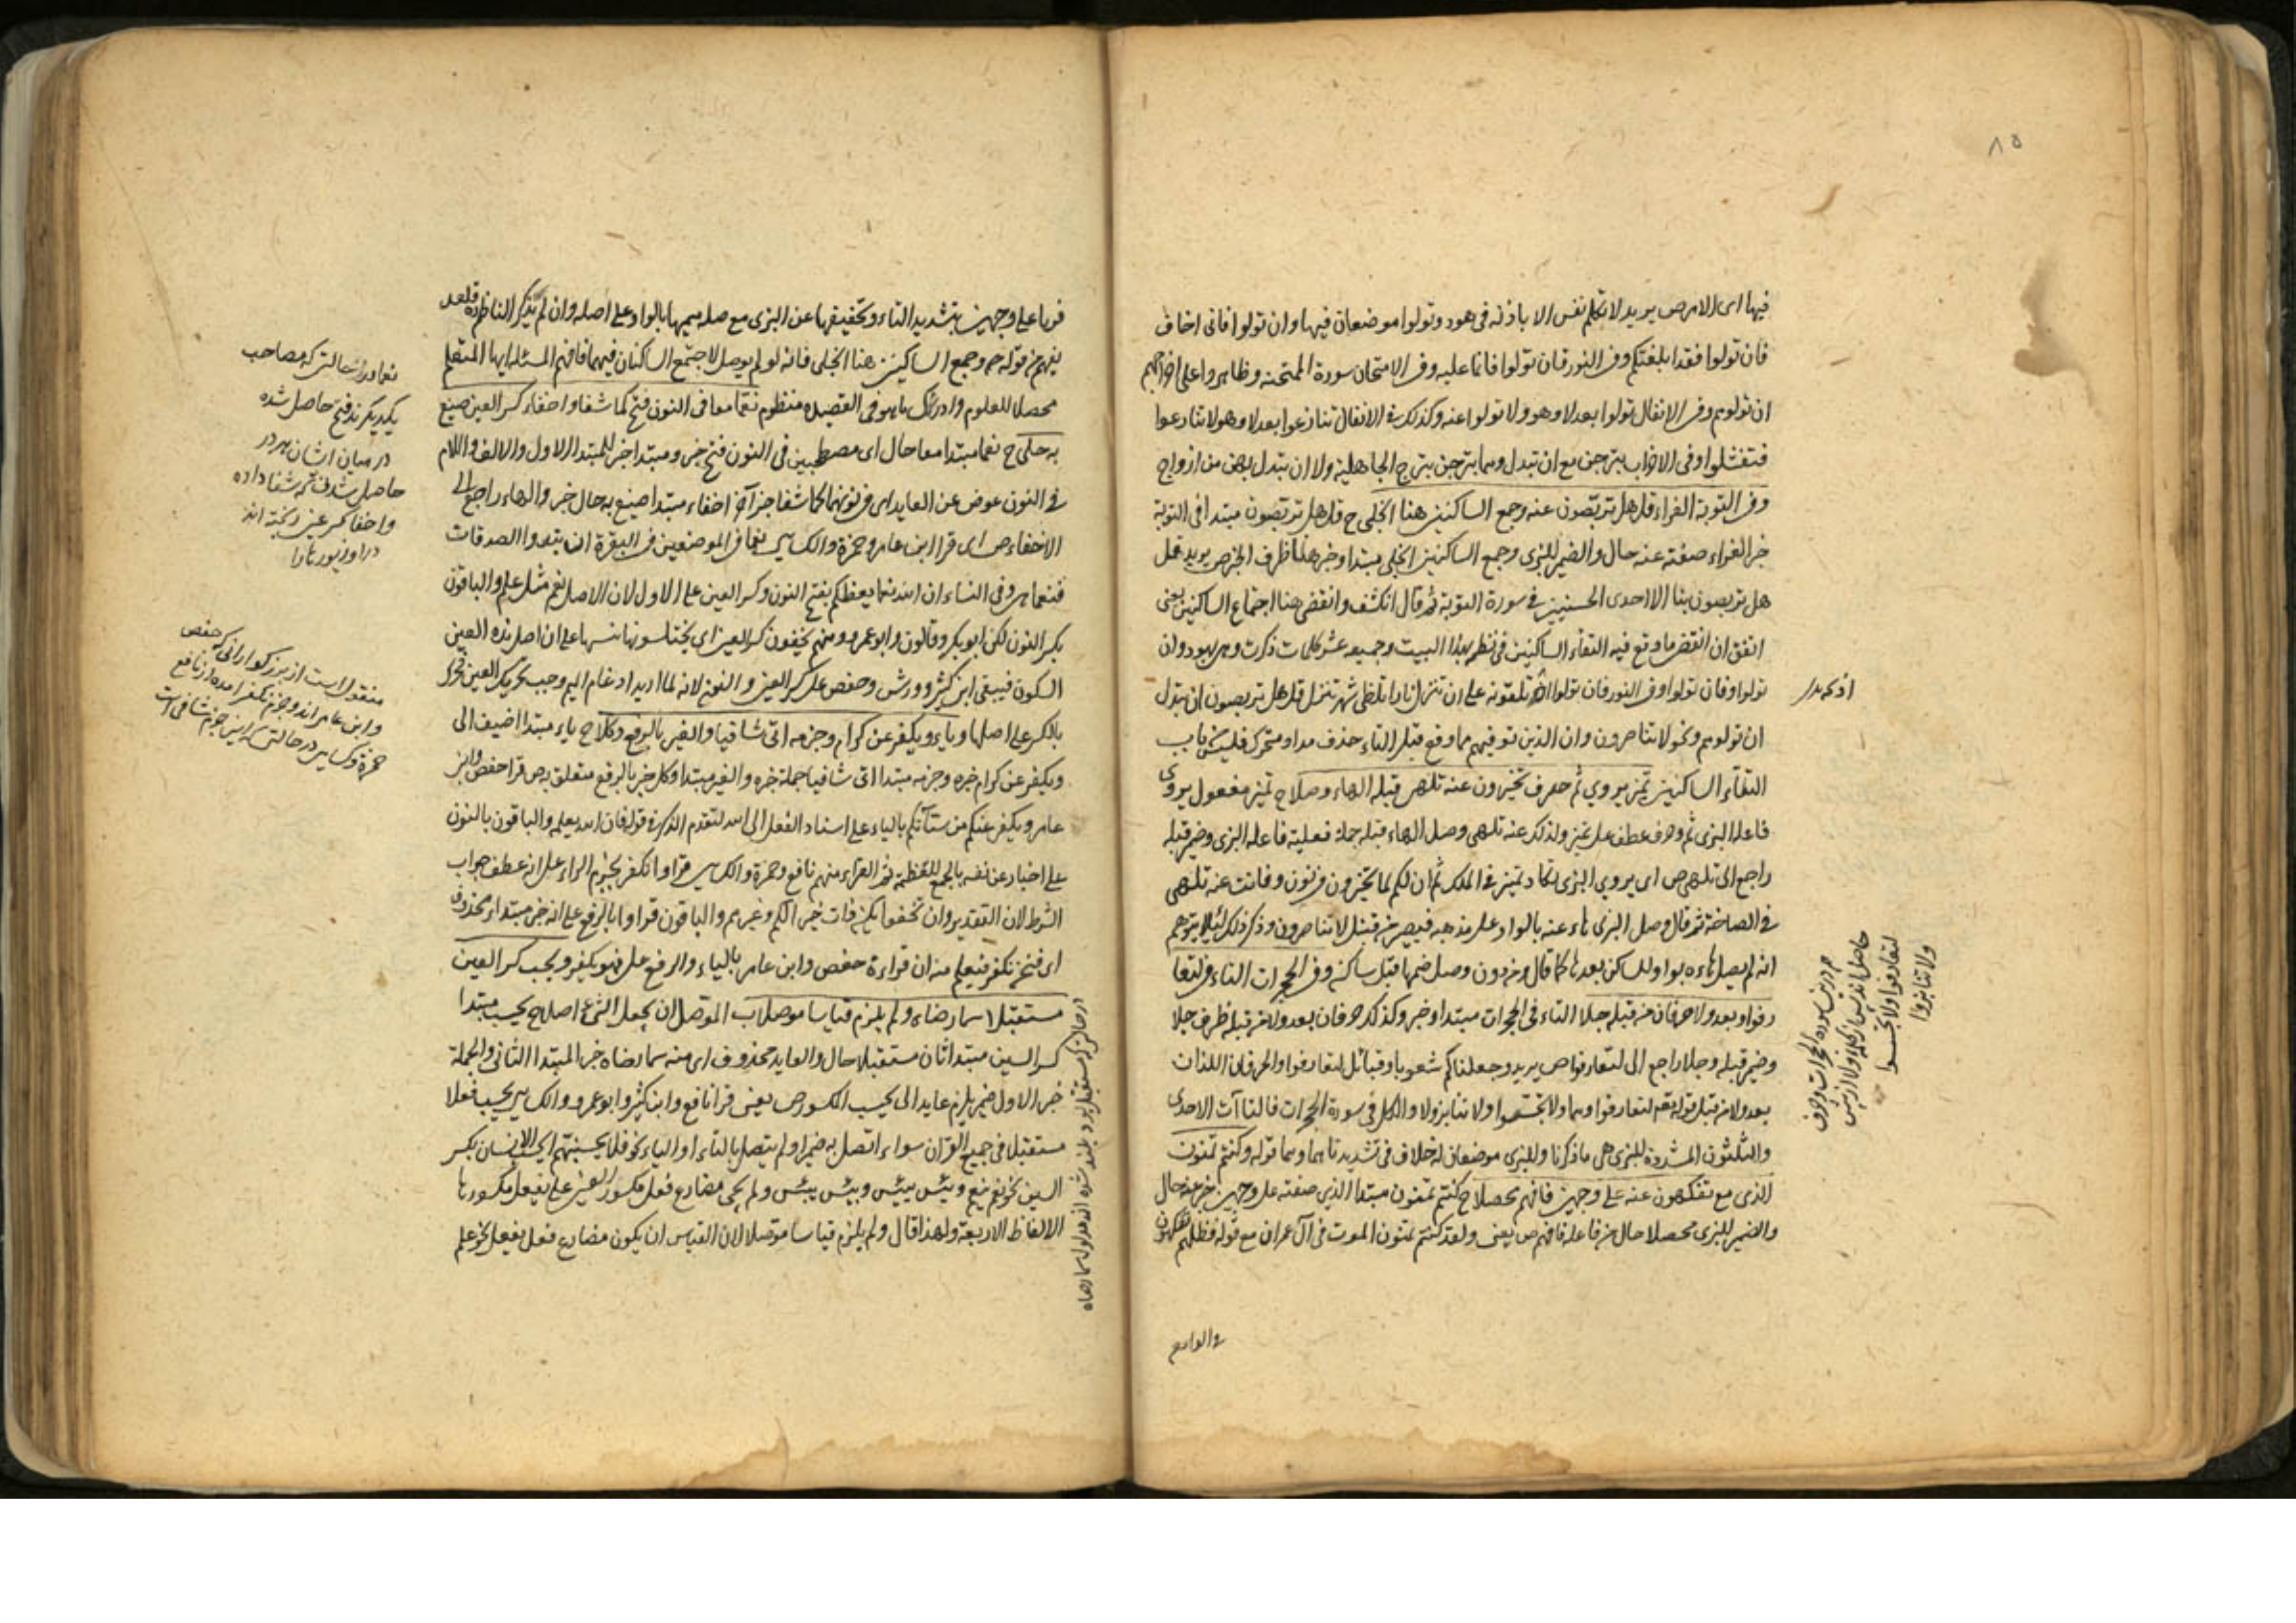 فيها اى الامر ص يريد لا تكلم نفس الا باذنه فى هود وتولوا موضعان فيها وان تولوا فانى اخاف
فان تولوا فقد ابلغتكم وفى النور فان تولوا فانما عليه وفى الامتحان سورة الممتحنة وظاهروا على اخراجكم
ان تولوهم وفى الانفال تولوا بعد لا وهو ولا تولوا عنه وكذلك فى الانفال تنازعوا بعد لا وهو لا تنازعوا
فتفشلوا وفى الاحزاب تبرجن مع ان تبدل وهما تبرجن تبرج الجاهلية ولا ان تبدل بهن من ازواج
وفى التوبة الغراء قل هل تربصون عنه وجمع الساكنين هنا انجلى ح قل هل تربصون مبتدا فى التوبة
خبر الغراء صفته عنه حال والضمير للبزى وجمع الساكنين انجلى مبتدا وخبر هنا ظرف الخبر ص يريد قل
هل تربصون بنا الا احدى الحسنيين فى سورة التوبة ثم قال انكشف وانقضى هنا اجتماع الساكنين يعنى
اتفق ان انقضى ما وقع فيه التقاء الساكنين فى نظم هذا البيت وجميعه عشر كلمات ذكرت وهى هود وان
تولوا وفان تولوا وفى النور فان تولوا اذ تلقونه على من تنزل نارا تلظى شهر تنزل قل هل تربصون ان تبدل
ان تولوهم ونحو لا تناصرون وان الذين توفيهم مما وقع قبل التاء حذف مد او متحرك فليس من باب
التقاء الساكنين تميز يروى ثم حرف تخيرون عنه تلهى قبله الهاء وصلا ح تميز مفعول يروى
فاعله البزى ثم وحرف عطف على تميز ولذلك عنه تلهى وصل الهاء قبله جملة فعلية فاعله البزى وضمير قبله
راجع الى تلهى ص اى يروى البزى تكاد تميز فى الملك ثم ان لكم لما تخيرون فى نون وفانت عنه تلهى
فى الصاخة ثم قال وصل البزى هاء عنه بالواو على مذهبه فيصير من قبيل لا تناصرون وذكر ذلك لئلا يتوهم
انه لم يصل هاءه بواو والساكن بعدها كما قال ومن دون وصل ضمها قبل ساكن وفى الحجرات التاء فى لتعا
رفوا وبعد ولا حرفان من قبله جلا التاء فى الحجرات مبتدا وخبر وكذلك حرفان بعد ولا من قبله ظرف جلا
وضمير قبله وجلا راجع الى لتعارفوا ص يريد وجعلناكم شعوبا وقبائل لتعارفوا والحرفان اللذان
بعد ولا من قبل قوله تعالى لتعارفوا وهما ولا تجسسوا ولا تنابزوا ولا والكل فى سورة الحجرات فالتاآت الاحدى
والثلثون المشددة للبزى هى ما ذكرنا وللبزى موضعان له خلاف فى تشديد تاءهما وهما قوله وكنتم تمنون
الذى مع تفكهون عنه على وجهين فافهم محصلا ح كنتم تمنون مبتدا الذى صفته على وجهين خبر عنه حال
والضمير للبزى محصلا حال من فاعل فافهم ص يعنى ولقد كنتم تمنون الموت فى آل عمران مع قوله فظلتم تفكهون
فى الواقعة
ولا تنابزوا
لتعارفوا ولا تجسسوا
قرءا على وجهين بتشديد التاء وتخفيفها عن البزى مع صلة ميمها بالواو على اصله وان لم يذكر الناظم
يفهم من قوله وجمع الساكنين هنا انجلى فانه لو لم يوصل لاجتمع الساكنان فيهما فافهم المسئلة ايها المتعلم
محصلا للعلوم وادرك ما هو فى القصيدة منظوم نعما معا فى النون فتح كما شفا واخفاء كسر العين صيغ
به حلى ح نعما مبتدا معا حال اى مصطحبين فى النون فتح خبر ومبتدا خبر للمبتدا الاول والالف واللام
فى النون عوض عن العايد اى فى نونهما كما شفا خبر آخر اخفاء مبتدا صيغ به حال خبر والهاء راجع الى
الاخفاء ص اى قرا ابن عامر وحمزة والكسائى نعما فى الموضعين فى البقرة ان تبدوا الصدقات
فنعما هى وفى النساء ان الله نعما يعظكم بفتح النون وكسر العين على الاول لان الاصل نعم مثل علم والباقون
بكسر النون لكن ابو بكر وقالون وابو عمرو ومنهم يخفون كسر العين اى يختلسونها تنبيها على ان اصل هذه العين
السكون فيبقى ابن كثير وورش وحفص على كسر العين والنون لانه لما اريد ادغام الميم وجب تحريك العين فحرك
بالكسر على اصلها ويا ويكفر عن كرام وجزمه اتى شافيا والغير بالرفع وكلا ح ياء مبتدا اضيف الى
ويكفر عن كرام خبره وجزمه مبتدا اتى شافيا جملة خبره والغير مبتدا وكلا خبر بالرفع متعلق به ص قرا حفص وابن
عامر ويكفر عنكم من سيآتكم بالياء على اسناد الفعل الى الله لتقدم الذكر فى قوله فان الله يعلمه والباقون بالنون
على اخبار عن نفسه بالجمع للعظمة ثم القراء منهم نافع وحمزة والكسائى قراوا نكفر بجزم الراء على انه عطف جواب
الشرط لان التقدير وان تخفوا يكن ذات خير لكم وغيرهم والباقون قراوا بالرفع على انه خبر مبتداء محذوف
اى فنحن نكفر فيعلم منه ان قراءة حفص وابن عامر بالياء والرفع على فهو يكفر ويحسب كسر السين
مستقبلا سما رضاه ولم يلزم قياسا موصلا ب الموصل ان يجعل الشئ اصلا ح يحسب مبتدا
كسر السين مبتدا ثان مستقبلا حال والعايد محذوف اى منه سما رضاه خبر المبتدا الثانى والجملة
خبر الاول ضمير يلزم عايد الى يحسب المكسور ص يعنى قرا نافع وابن كثير وابو عمرو والكسائى يحسب فعلا
مستقبلا فى جميع القران سواء اتصل به ضمير او لم يتصل بالتاء او الياء نحو فلا يحسبنهم ايحسب الانسان بكسر
السين نحو نعم ينعم ويئس ييئس وبئس يبئس ولم يجئ مضارع فعل مكسور العين على يفعل مكسورها
الا الفاظ الاربعة ولهذا قال ولم يلزم قياسا موصلا لان القياس ان يكون مضارع فعل يفعل نحو علم
يكديكرند فتح حاصل شده
در ميان ايشان هر در
منقول است از بزركواران كه حفص
وابن عامر اند وجزم نكفر امده از نافع
حمزة وكسايى در حالتى كه اين جزم شافى است